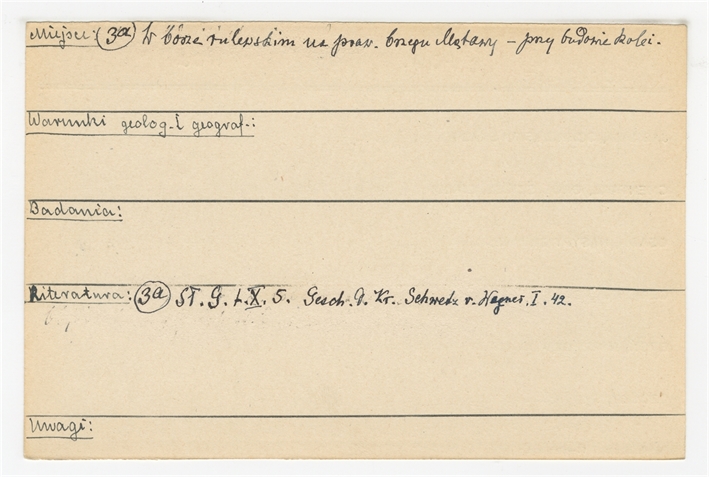 Miejsce: (3a) W borze rulewskim na praw. brzegu Mątawy – przy budowie kolei.
Warunki geolog. i geograf.:
Badania:
Literatura: (3a) St. G. t. X. 5. Gesch. d. Kr. Schwetz v. Wegner, I. 42.
Uwagi: